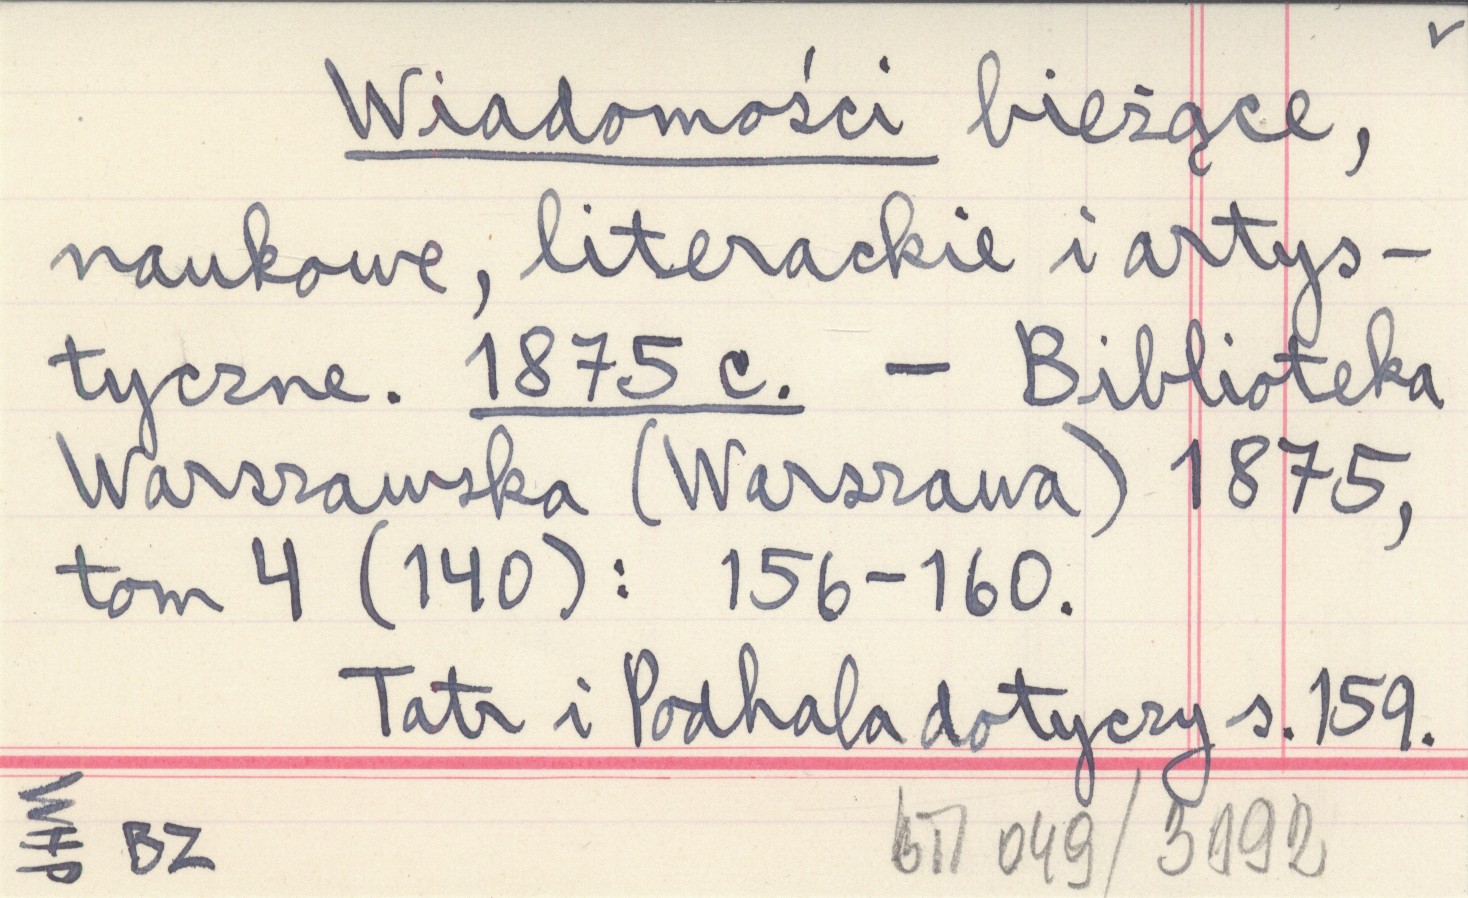 Wiadomości bieżące,
naukowe, literackie i artys-
tyczne. 1875 c. – Biblioteka
Warszawska (Warszawa) 1875,
tom 4 (140): 156-160.
Tatr i Podhala dotyczy s. 159.
WHP BZ
049/3192